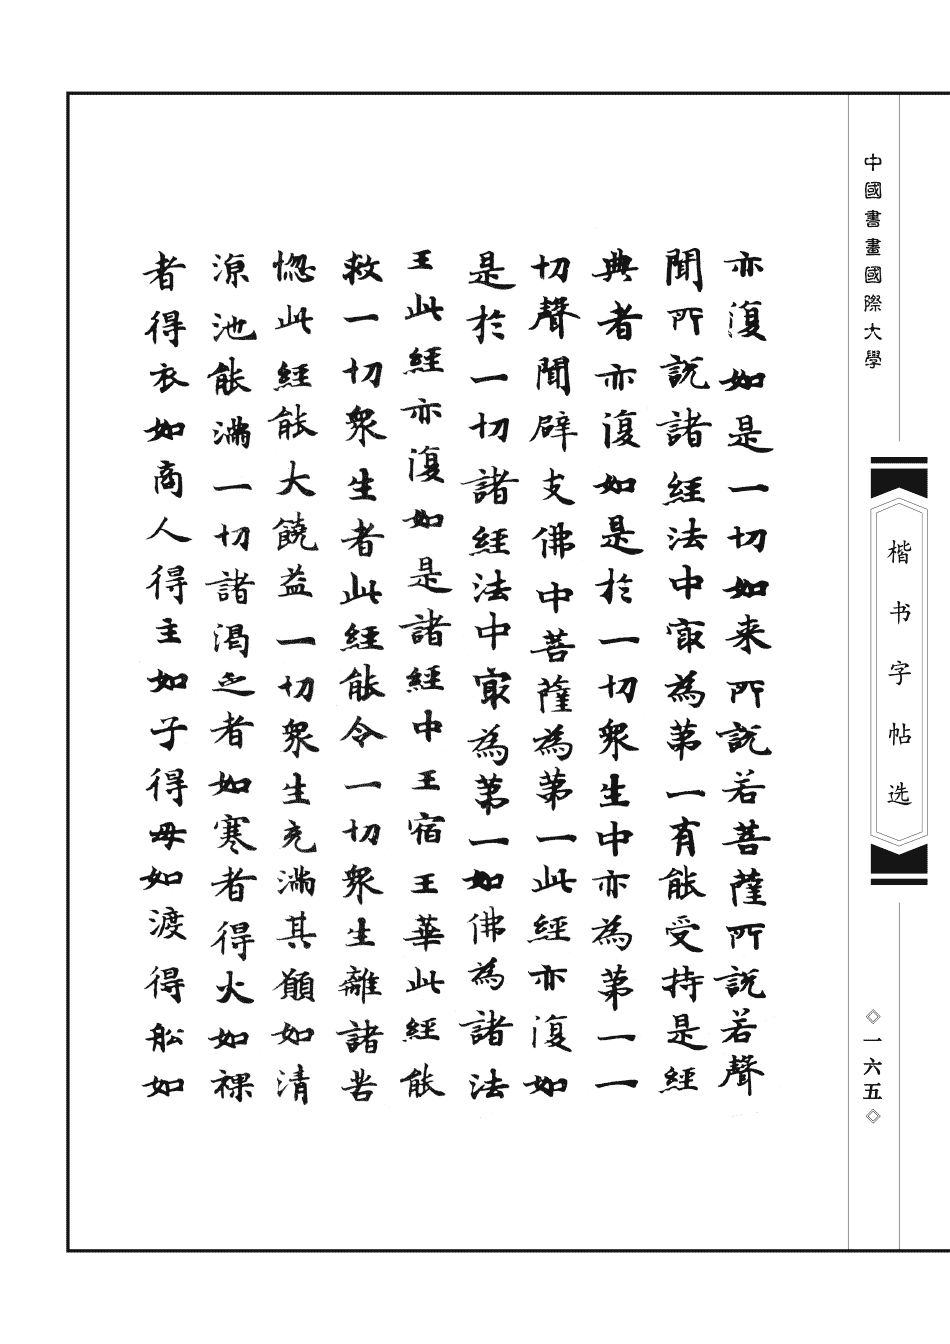 中國書畫國際大學
楷书字帖选
一六五
亦復如是一切如来所説若菩薩所説若聲
聞所説諸經法中㝡為苐一有能受持是經
典者亦復如是於一切衆生中亦為苐一一
切聲聞辟支佛中菩薩為苐一此經亦復如
是於一切諸經法中㝡為苐一如佛為諸法
王此經亦復如是諸經中王宿王華此經能
救一切衆生者此經能令一切衆生離諸苦
惚此經能大饒益一切衆生充満其願如清
涼池能満一切諸渴之者如寒者得火如裸
者得衣如商人得主如子得母如渡得舩如